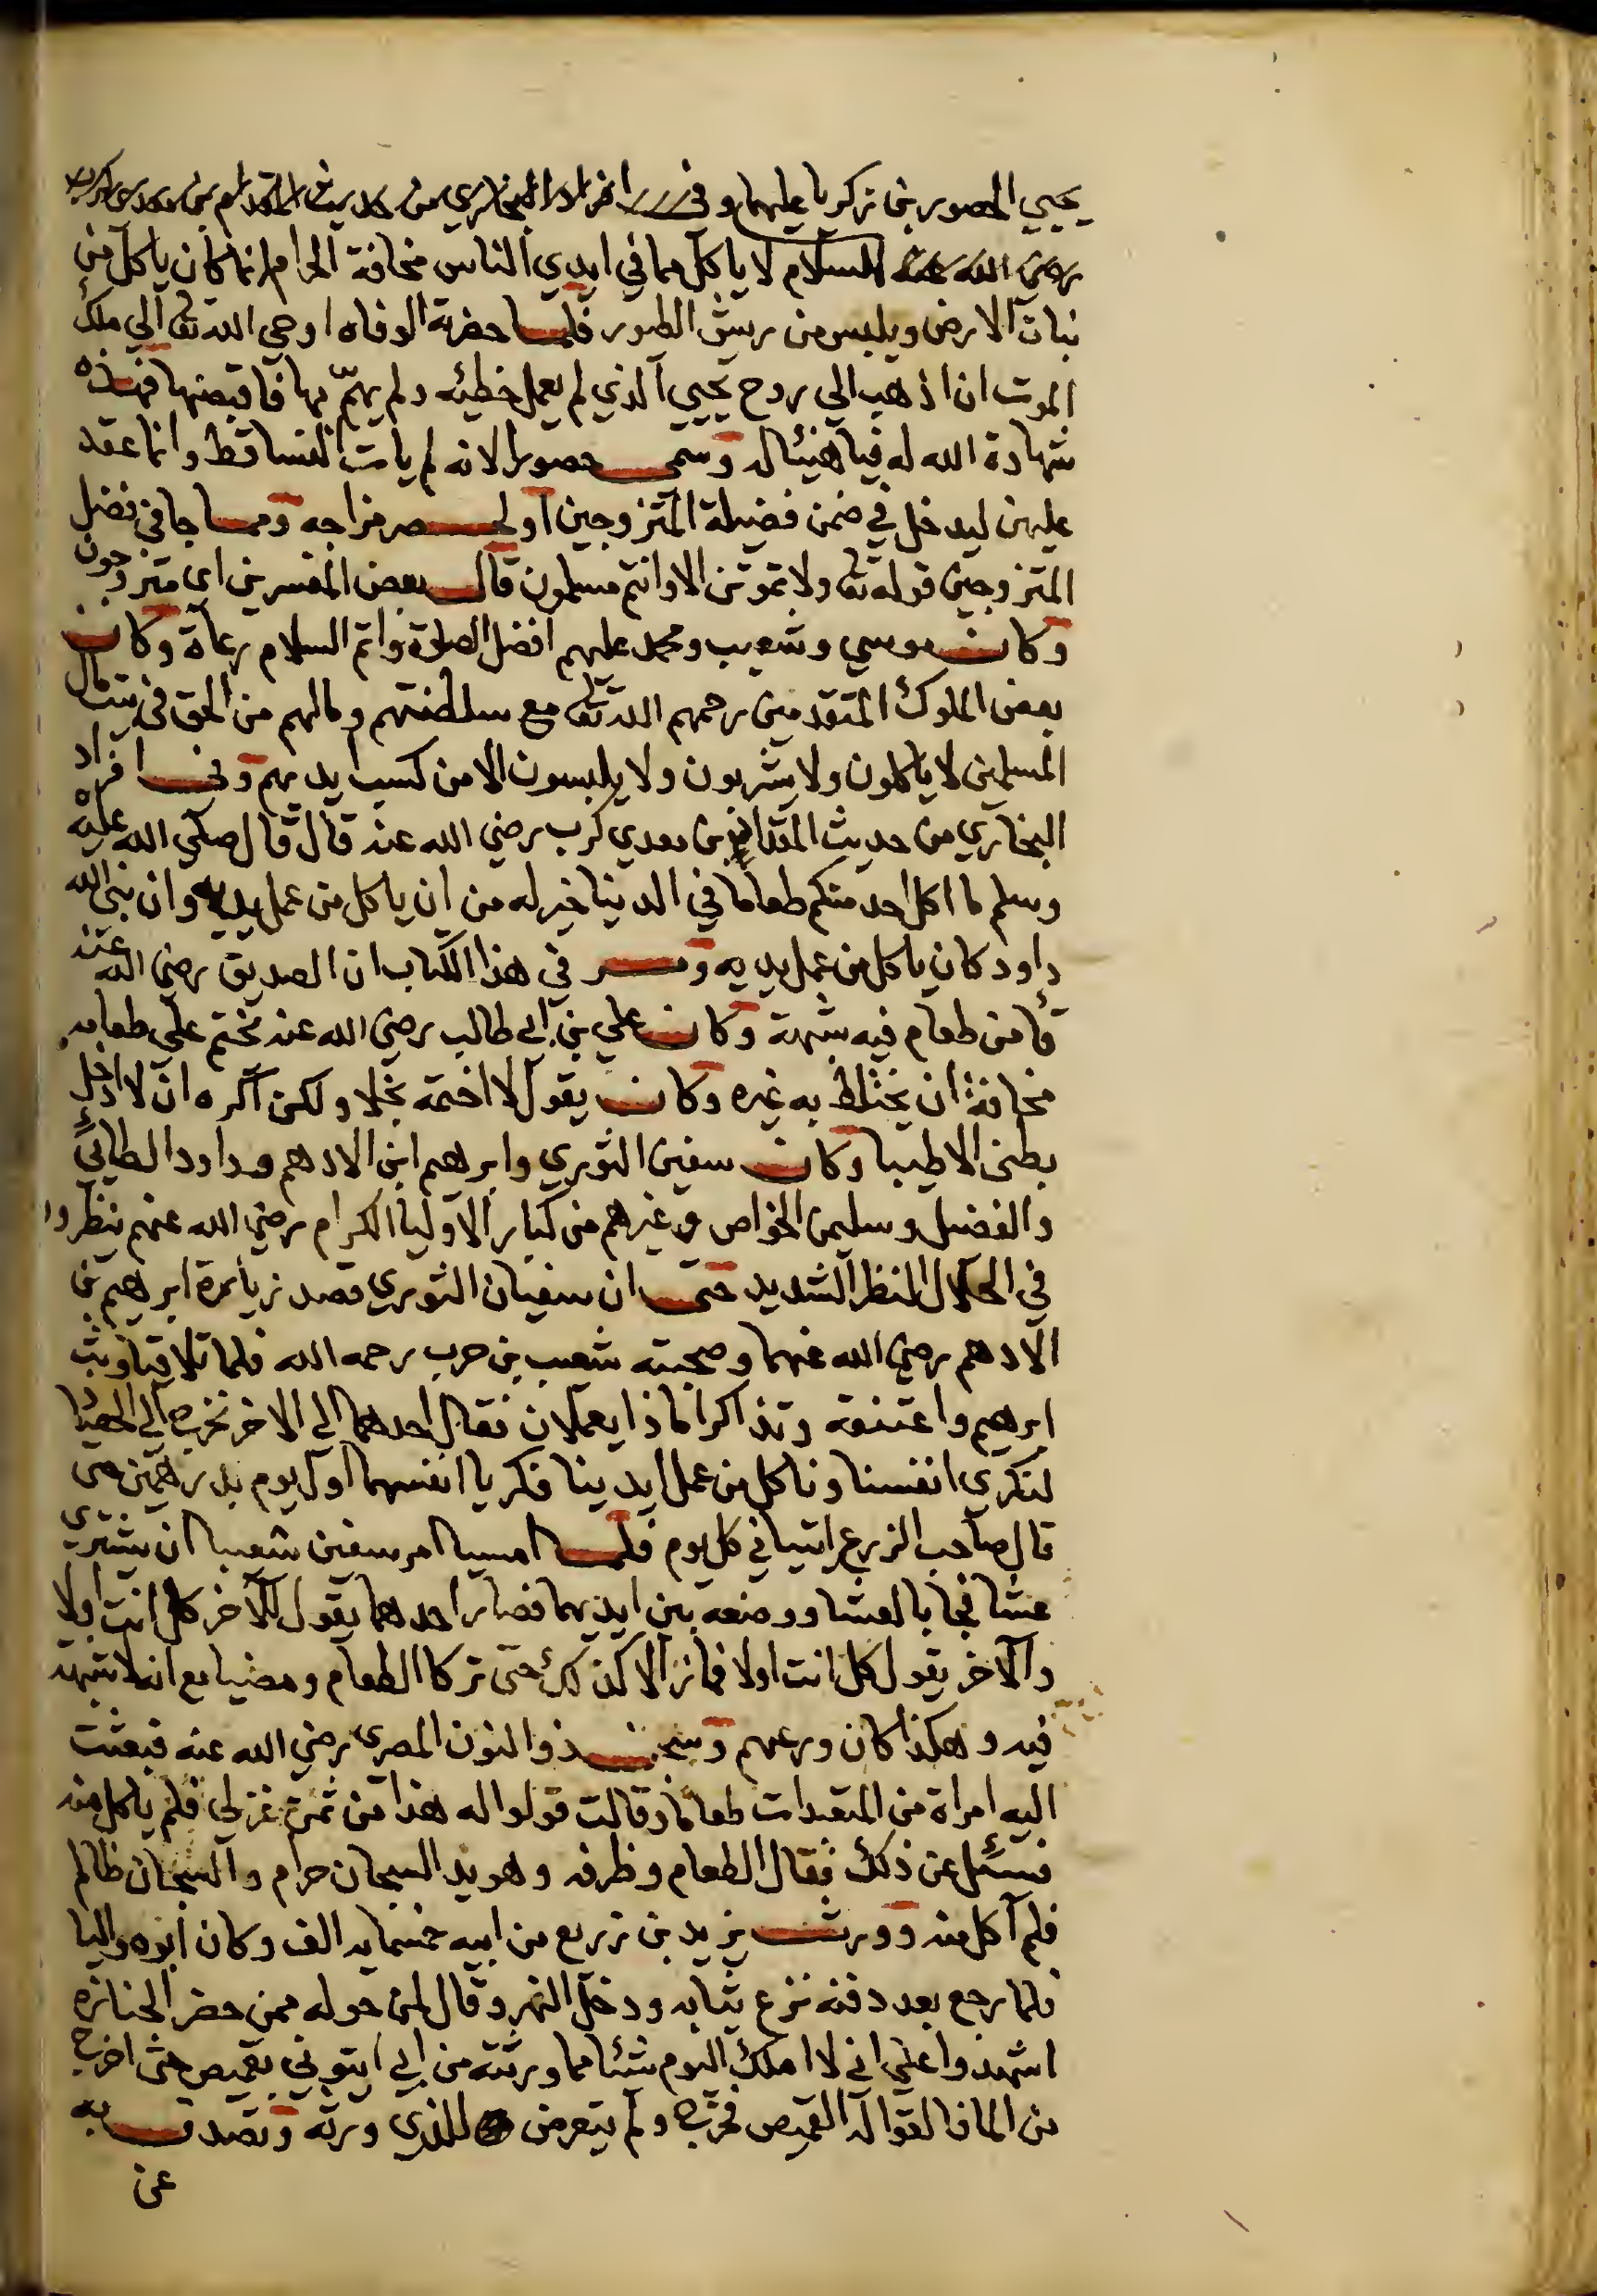 يحيي الحصور بن زكريا عليهما وفي افراد البخاري من حديث المقدام بن معدي كرب
رضي الله عنه السلام لا ياكل مما في ايدي الناس مخافة الحرام انما كان ياكل من
نبات الارض ويلبس من ريش الطيور فلما حضرته الوفاه اوحي الله تعالى الي ملك
الموت ان اذهب الي روح يحيي الذي لم يعمل خطيئه ولم يهمّ بها فاقبضها فهذه
شهادة الله له فيا هنيئا له وسمى حصورا لانه لم يات النسا قط وانما عقد
عليهن ليدخل في ضمن فضيلة المتزوجين او لحصر مزاجه ومما جا في فضل
المتزوجين قوله تعالى ولا تموتن الا وانتم مسلمون قال بعض المفسرين اى متزوجون
وكان موسي وشعيب ومحمد عليهم افضل الصلوة واتم السلام رعاة وكان
بعض الملوك المتقدمين رحمهم الله تعالى مع سلطنتهم ومالهم من الحق في بيت مال
المسلمين لا ياكلون ولا يشربون ولا يلبسون الا من كسب ايديهم وفي افراد
البخاري من حديث المقدام بن معدي كرب رضي الله عنه قال قال صلى الله عليه
وسلم ما اكل احد منكم طعاما في الدينا خير له من ان ياكل من عمل يديه وان نبى الله
داود كان ياكل من عمل يديه ومر في هذا الكتاب ان الصديق رضي الله عنه
قأ من طعام فيه شبهة وكان علي بن ابي طالب رضي الله عنه يختم على طعامه
مخافة ان يختلط به غيره وكان يقول لا اختمه بخلا ولكن اكره ان لا ادخل
بطنى الا طيبا وكان سفين الثوري وابرهيم ابن الادهم وداود الطائي
والفضيل وسليمن الخواص وغيرهم من كبار الاوليا الكرام رضي الله عنهم ينظروا
في الحلال النظر الشديد حتى ان سفيان الثوري قصد زيارة ابرهيم بن
الادهم رضي الله عنهما وصحبته شعيب بن حرب رحمه الله فلما تلاقيا وثب
ابرهيم واعتنقه وتذاكرا ماذا يعملان فقال احدهما الي الاخر نخرج الي الحصاد
لنكري انفسنا وناكل من عمل ايدينا فكريا انفسهما اول يوم بدرهمين حتى
قال صاحب الزرع اتيا في كل يوم فلما امسيا امر سفين شعيبا ان يشتري
عشا فجا بالعشا ووضعه بين ايديهما فصار احدهما يقول للاخر كل انت اولا
والاخر يقول كل انت اولا فما زالا كذلك حتى تركا الطعام ومضيا مع انه لا شبهة
فيه وهكذا كان ورعهم وسجن ذو النون المصري رضي الله عنه فبعثت
اليه امراة من المتعبدات طعاما وقالت قولوا له هذا من ثمن غزلي فلم ياكل منه
فسئل عن ذلك فقال الطعام وظرفه وهو يد السجان حرام والسجان ظالم
فلم آكل منه وورث يزيد بن زريع من ابيه خمسمايه الف وكان ابوه واليا
فلما رجع بعد دفنه نزع ثيابه ودخل النهر وقال لمن حوله ممن حضر الجنازه
اشهدوا علي اني لا املك اليوم شئا مما ورثته من ابي ايتوني بقميص حتى اخرج
من الما فالقوا له القميص فخرج ولم يتعرض للذي ورثه وتصدق به
عن